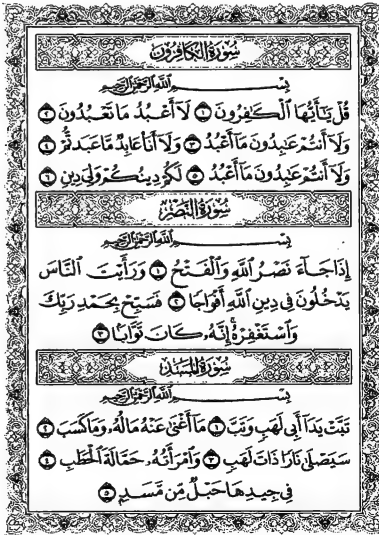 سُورَةُ الْكَافِرُونَ
بِسْمِ اللَّهِ الرَّحْمَٰنِ الرَّحِيمِ
قُلْ يَٰٓأَيُّهَا ٱلْكَٰفِرُونَ ١ لَآ أَعْبُدُ مَا تَعْبُدُونَ ٢
وَلَآ أَنتُمْ عَٰبِدُونَ مَآ أَعْبُدُ ٣ وَلَآ أَنَا۠ عَابِدٌ مَّا عَبَدتُّمْ ٤
وَلَآ أَنتُمْ عَٰبِدُونَ مَآ أَعْبُدُ ٥ لَكُمْ دِينُكُمْ وَلِىَ دِينِ ٦
سُورَةُ النَّصْرِ
بِسْمِ اللَّهِ الرَّحْمَٰنِ الرَّحِيمِ
إِذَا جَآءَ نَصْرُ ٱللَّهِ وَٱلْفَتْحُ ١ وَرَأَيْتَ ٱلنَّاسَ
يَدْخُلُونَ فِى دِينِ ٱللَّهِ أَفْوَاجًا ٢ فَسَبِّحْ بِحَمْدِ رَبِّكَ
وَٱسْتَغْفِرْهُ إِنَّهُۥ كَانَ تَوَّابًۢا ٣
سُورَةُ الْمَسَد
بِسْمِ اللَّهِ الرَّحْمَٰنِ الرَّحِيمِ
تَبَّتْ يَدَآ أَبِى لَهَبٍ وَتَبَّ ١ مَآ أَغْنَىٰ عَنْهُ مَالُهُۥ وَمَا كَسَبَ ٢
سَيَصْلَىٰ نَارًا ذَاتَ لَهَبٍ ٣ وَٱمْرَأَتُهُۥ حَمَّالَةَ ٱلْحَطَبِ ٤
فِى جِيدِهَا حَبْلٌ مِّن مَّسَدٍۭ ٥